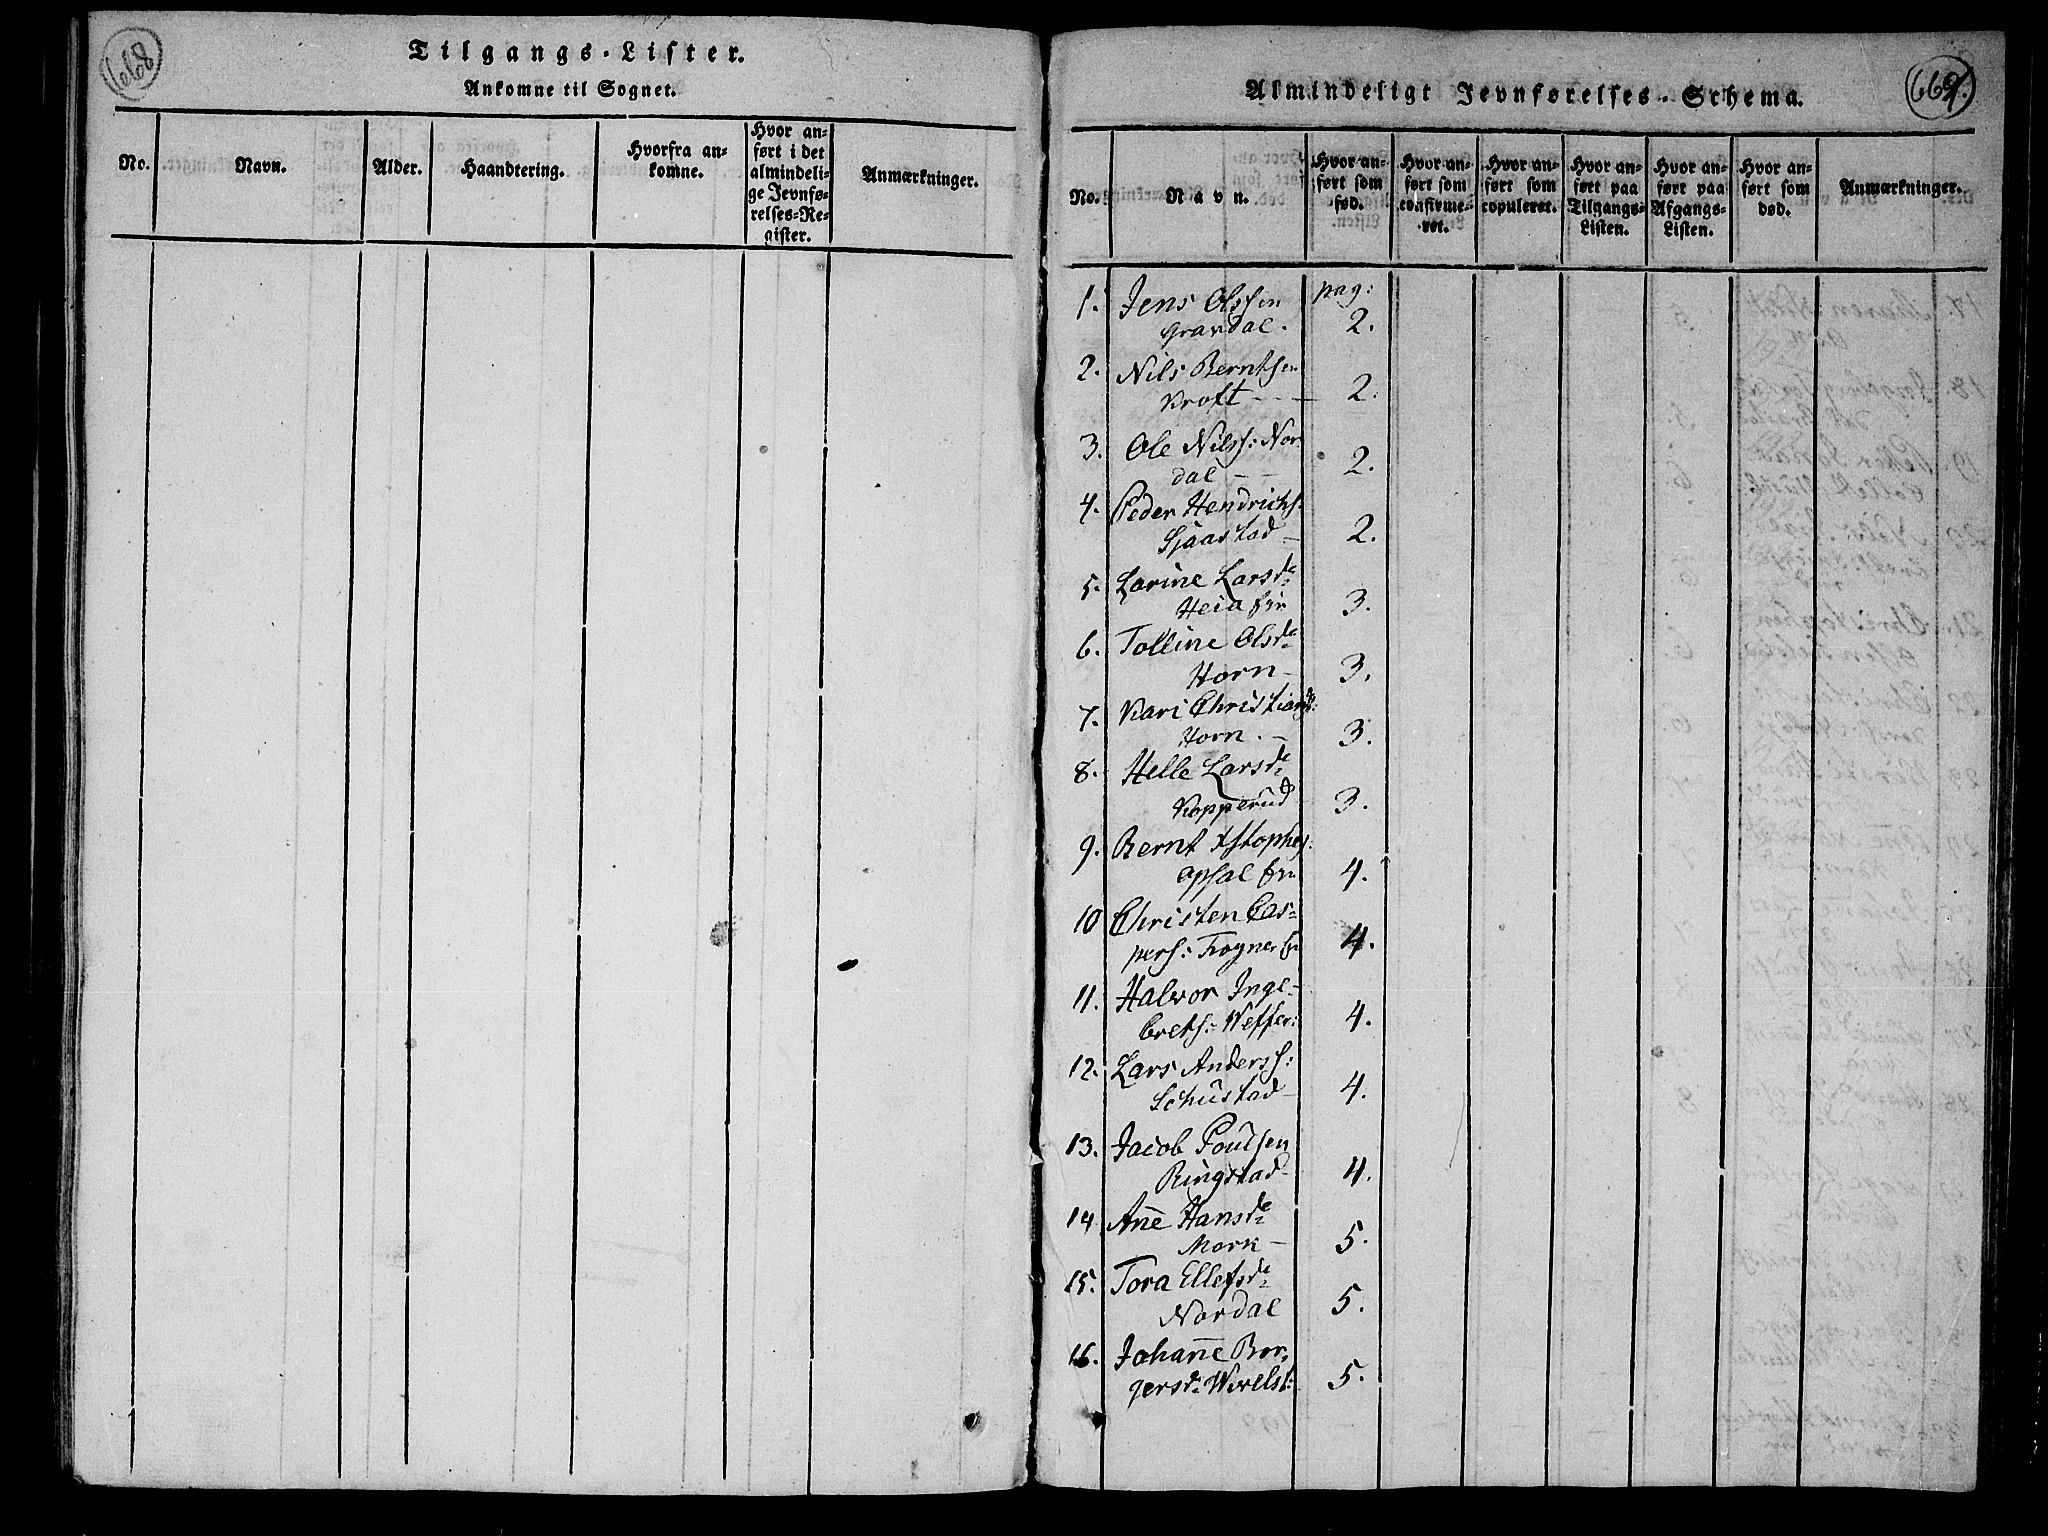 668
Tilgangs-Lister.
Ankomne til Sognet.
No.
Navn.
Alder.
Haandtering.
Hvorfra an-
komne.
Hvor an-
ført i det
almindeli-
ge Jevnfø-
relses-Re-
gister.
Anmærkninger.
669.
Almindeligt Jevnførelses-Schema.
No.
Navn.
Hvor an-
ført som
fød.
Hvor an-
ført som
confirme-
ret.
Hvor an-
ført som
copuleret.
Hvor an-
ført paa
Tilgangs-
Listen.
Hvor an-
ført paa
Afgangs-
Listen.
Hvor an-
ført som
død.
Anmærkninger.
1. Jens Olssen pag:
Gravdal. 2.
2. Nils Berntsen
Kroft - - - 2.
3. Ole Nilss: Nor
dal - - 2.
4. Peder Hendrichs:
Sjaastad - 2.
5. Larine Larsd:
Heia 3.
6. Tolline Olsd:
Horn - 3.
7. Kari Christiansd:
Horn. - 3.
8. Helle Larsd:
Kopperud 3.
9. Bernt Xstophers:
Opsal 4.
10 Christen Cas-
pers: Trogner 4.
11. Halvor Inge-
brets: 4.
12. Lars Anderss:
Schustad - 4.
13. Jacob Poulsen
Ringstad - 4.
14 Ane Hansd:
Mork - 5.
15. Tora Ellefsd:
Nordal 5.
16. Johanne Bor-
gersd: Wivelst: 5.